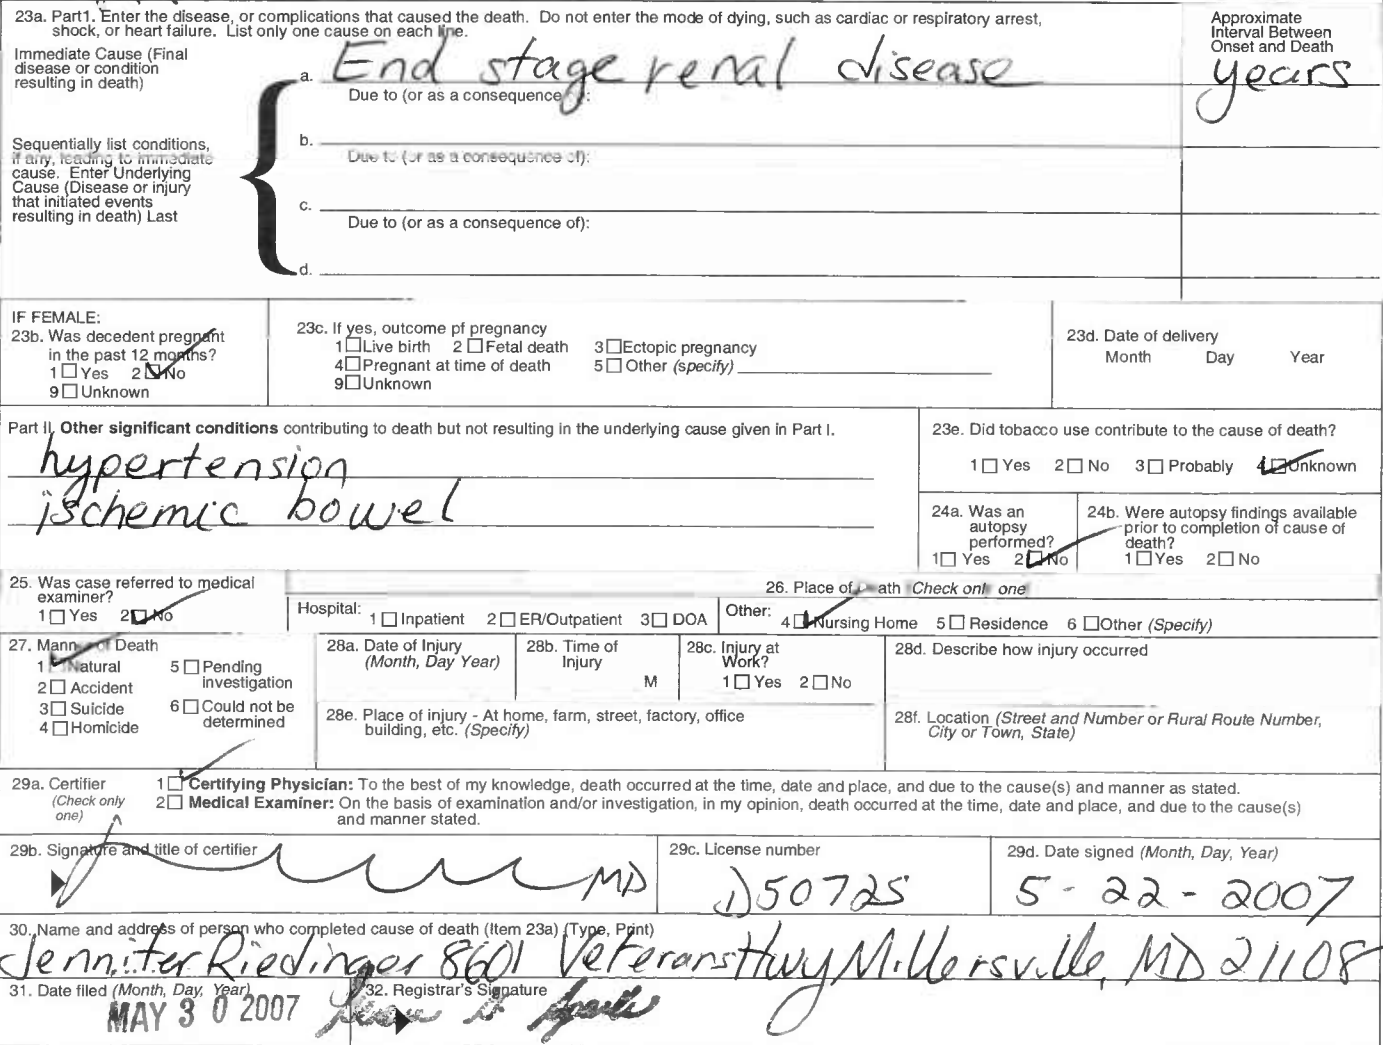 23a. Part1. Enter the disease, or complications that caused the death. Do not enter the mode of dying, such as cardiac or respiratory arrest,
shock, or heart failure. List only one cause on each line.
Approximate
Interval Between
Onset and Death
Immediate Cause (Final
disease or condition
resulting in death)
a. End stage renal disease
years
Due to (or as a consequence of):
Sequentially list conditions,
if any, leading to immediate
cause. Enter Underlying
Cause (Disease or injury
that initiated events
resulting in death) Last
b.
Due to (or as a consequence of):
c.
Due to (or as a consequence of):
d.
IF FEMALE:
23b. Was decedent pregnant
in the past 12 months?
1 Yes 2 No
9 Unknown
23c. If yes, outcome pf pregnancy
1 Live birth 2 Fetal death 3 Ectopic pregnancy
4 Pregnant at time of death 5 Other (specify)
9 Unknown
23d. Date of delivery
Month Day Year
Part II. Other significant conditions contributing to death but not resulting in the underlying cause given in Part I.
hypertension
ischemic bowel
23e. Did tobacco use contribute to the cause of death?
1 Yes 2 No 3 Probably 4 Unknown
24a. Was an
autopsy
performed?
1 Yes 2 No
24b. Were autopsy findings available
prior to completion of cause of
death?
1 Yes 2 No
25. Was case referred to medical
examiner?
1 Yes 2 No
26. Place of Death (Check only one)
Hospital: 1 Inpatient 2 ER/Outpatient 3 DOA
Other: 4 Nursing Home 5 Residence 6 Other (Specify)
27. Manner of Death
1 Natural
2 Accident
3 Suicide
4 Homicide
5 Pending
investigation
6 Could not be
determined
28a. Date of Injury
(Month, Day Year)
28b. Time of
Injury
M
28c. Injury at
Work?
1 Yes 2 No
28d. Describe how injury occurred
28e. Place of injury - At home, farm, street, factory, office
building, etc. (Specify)
28f. Location (Street and Number or Rural Route Number,
City or Town, State)
29a. Certifier
(Check only
one)
1 Certifying Physician: To the best of my knowledge, death occurred at the time, date and place, and due to the cause(s) and manner as stated.
2 Medical Examiner: On the basis of examination and/or investigation, in my opinion, death occurred at the time, date and place, and due to the cause(s)
and manner stated.
29b. Signature and title of certifier
MD
29c. License number
D50725
29d. Date signed (Month, Day, Year)
5-22-2007
30. Name and address of person who completed cause of death (Item 23a) (Type, Print)
Jennifer Riedinger 8601 Veterans Hwy Millersville, MD 21108
31. Date filed (Month, Day, Year)
MAY 30 2007
32. Registrar's Signature